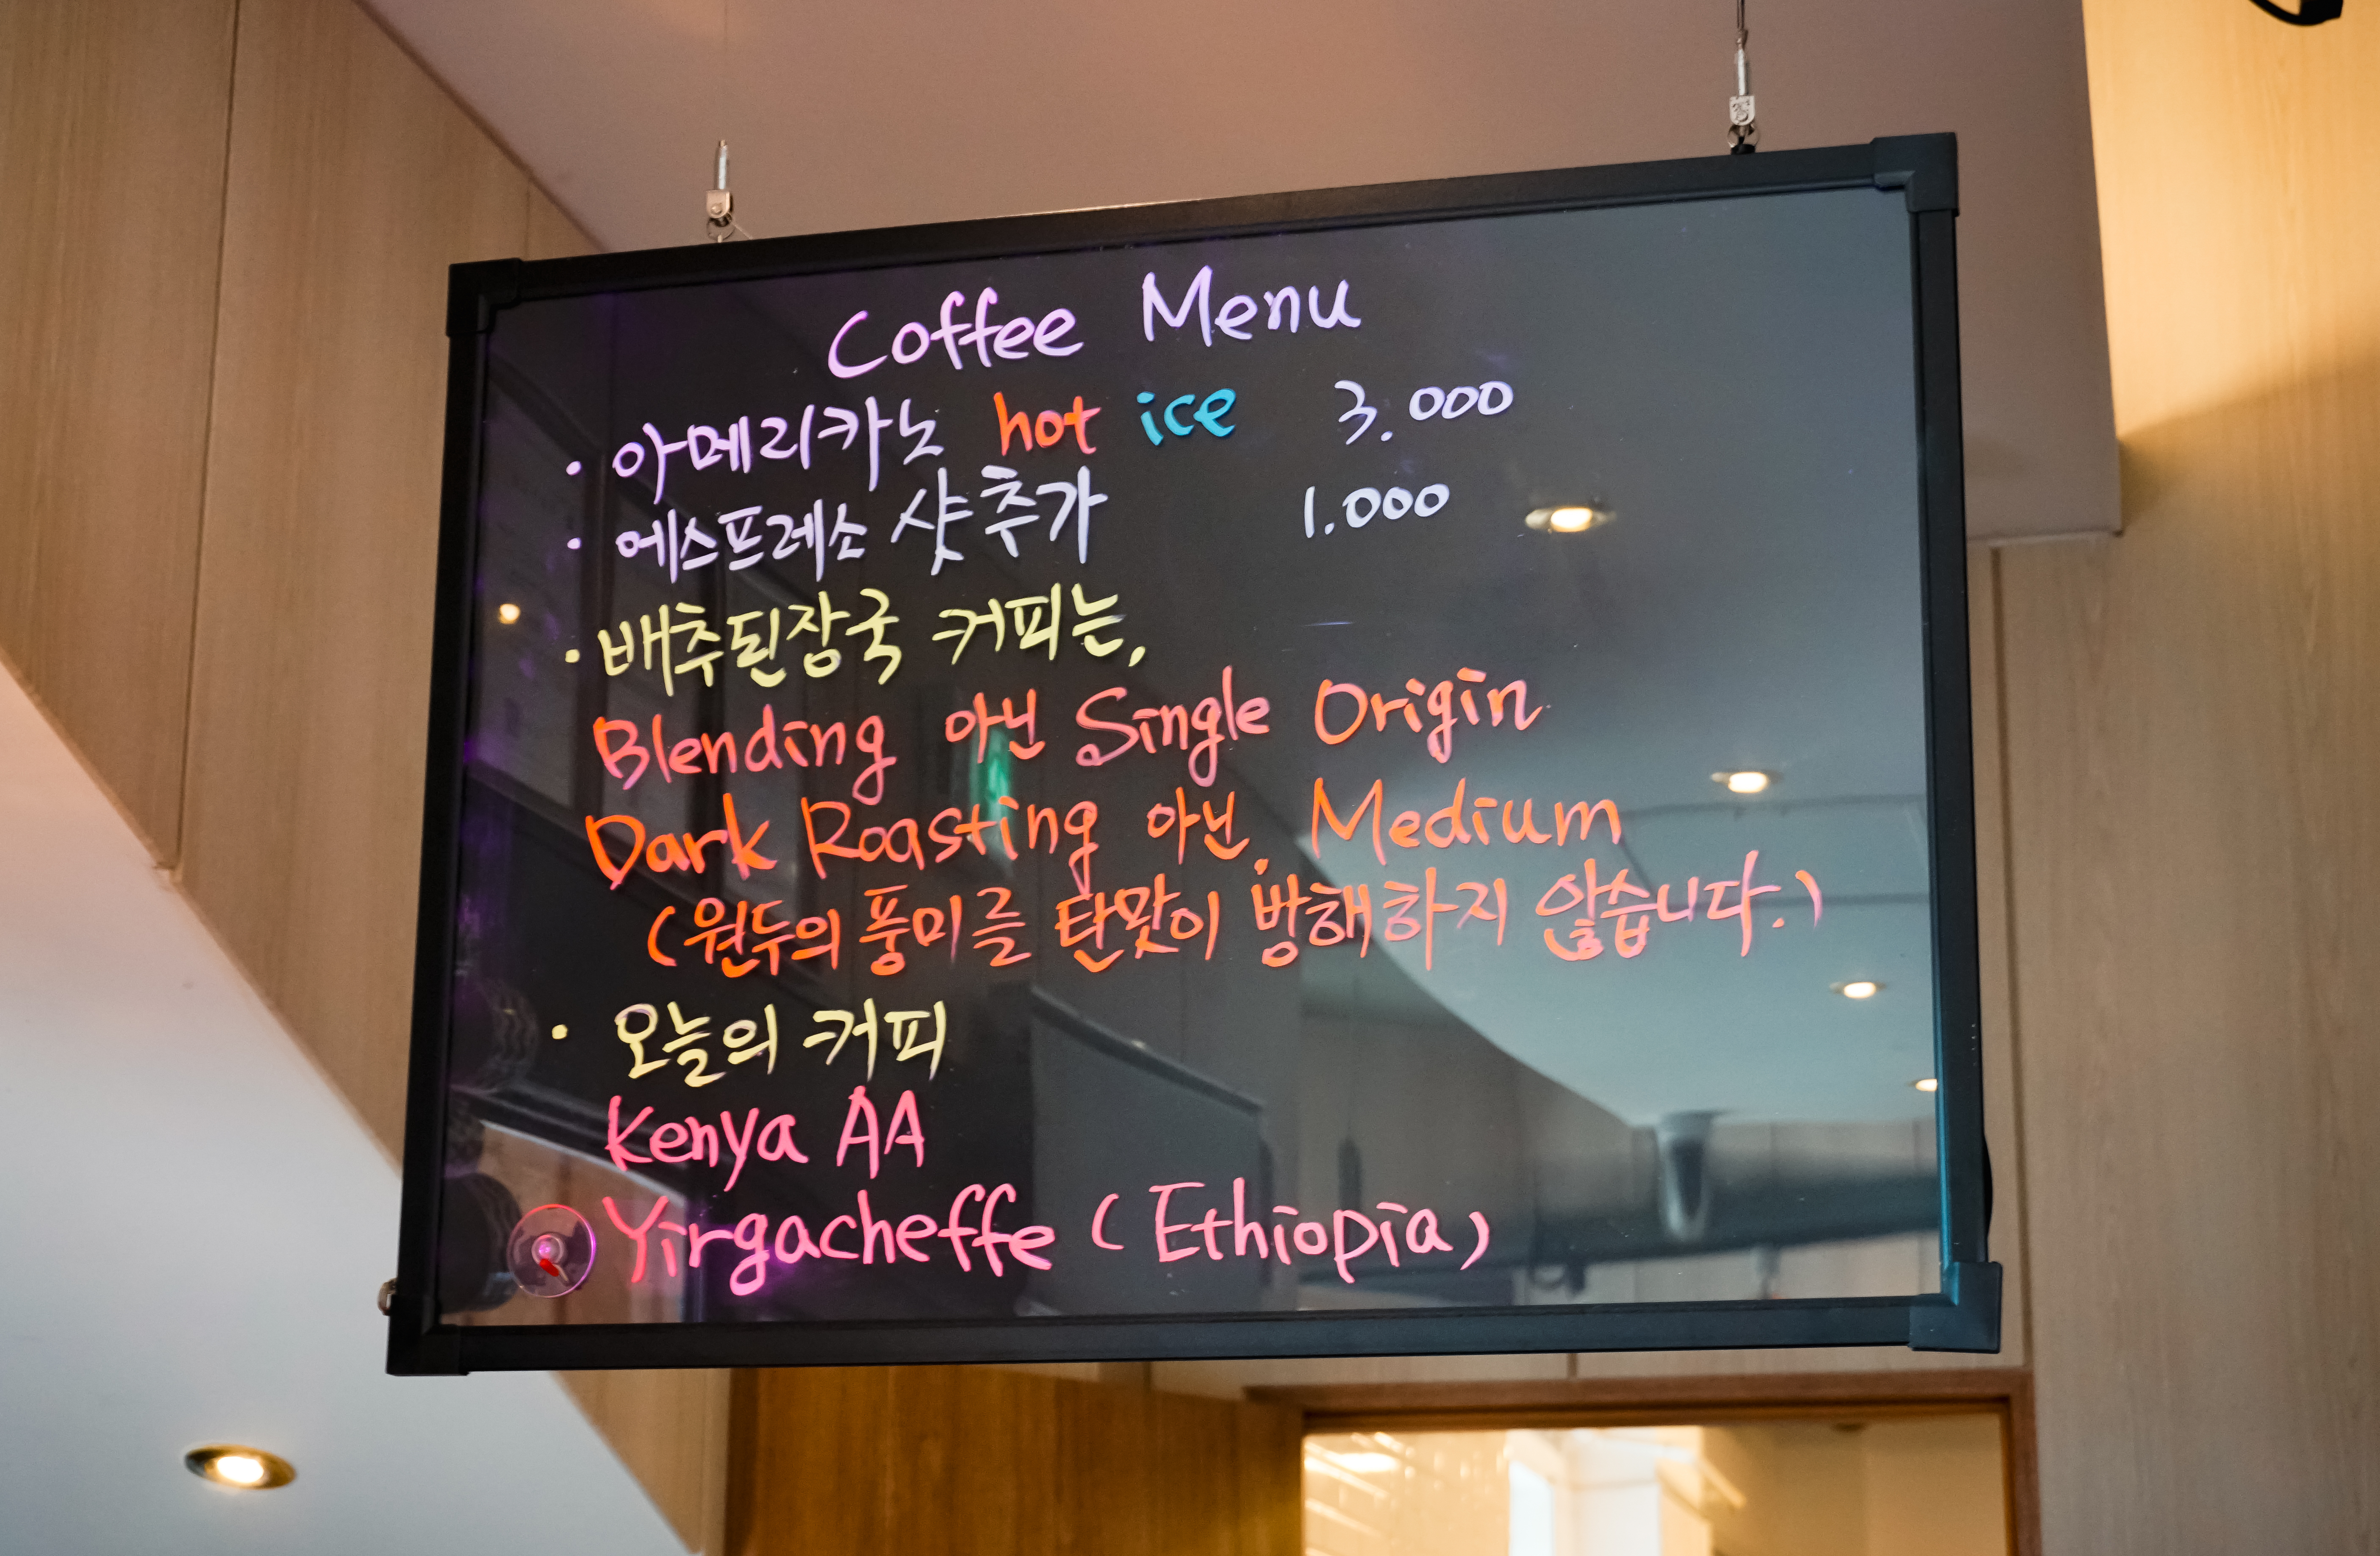 Coffee Menu
· 아메리카노 hot ice 3.000
· 에스프레소 샷추가 1.000
· 배추된장국 커피는,
Blending 아닌 Single Origin
Dark Roasting 아닌, Medium
(원두의 풍미를 탄맛이 방해하지 않습니다.)
· 오늘의 커피
Kenya AA
Yirgacheffe (Ethiopia)